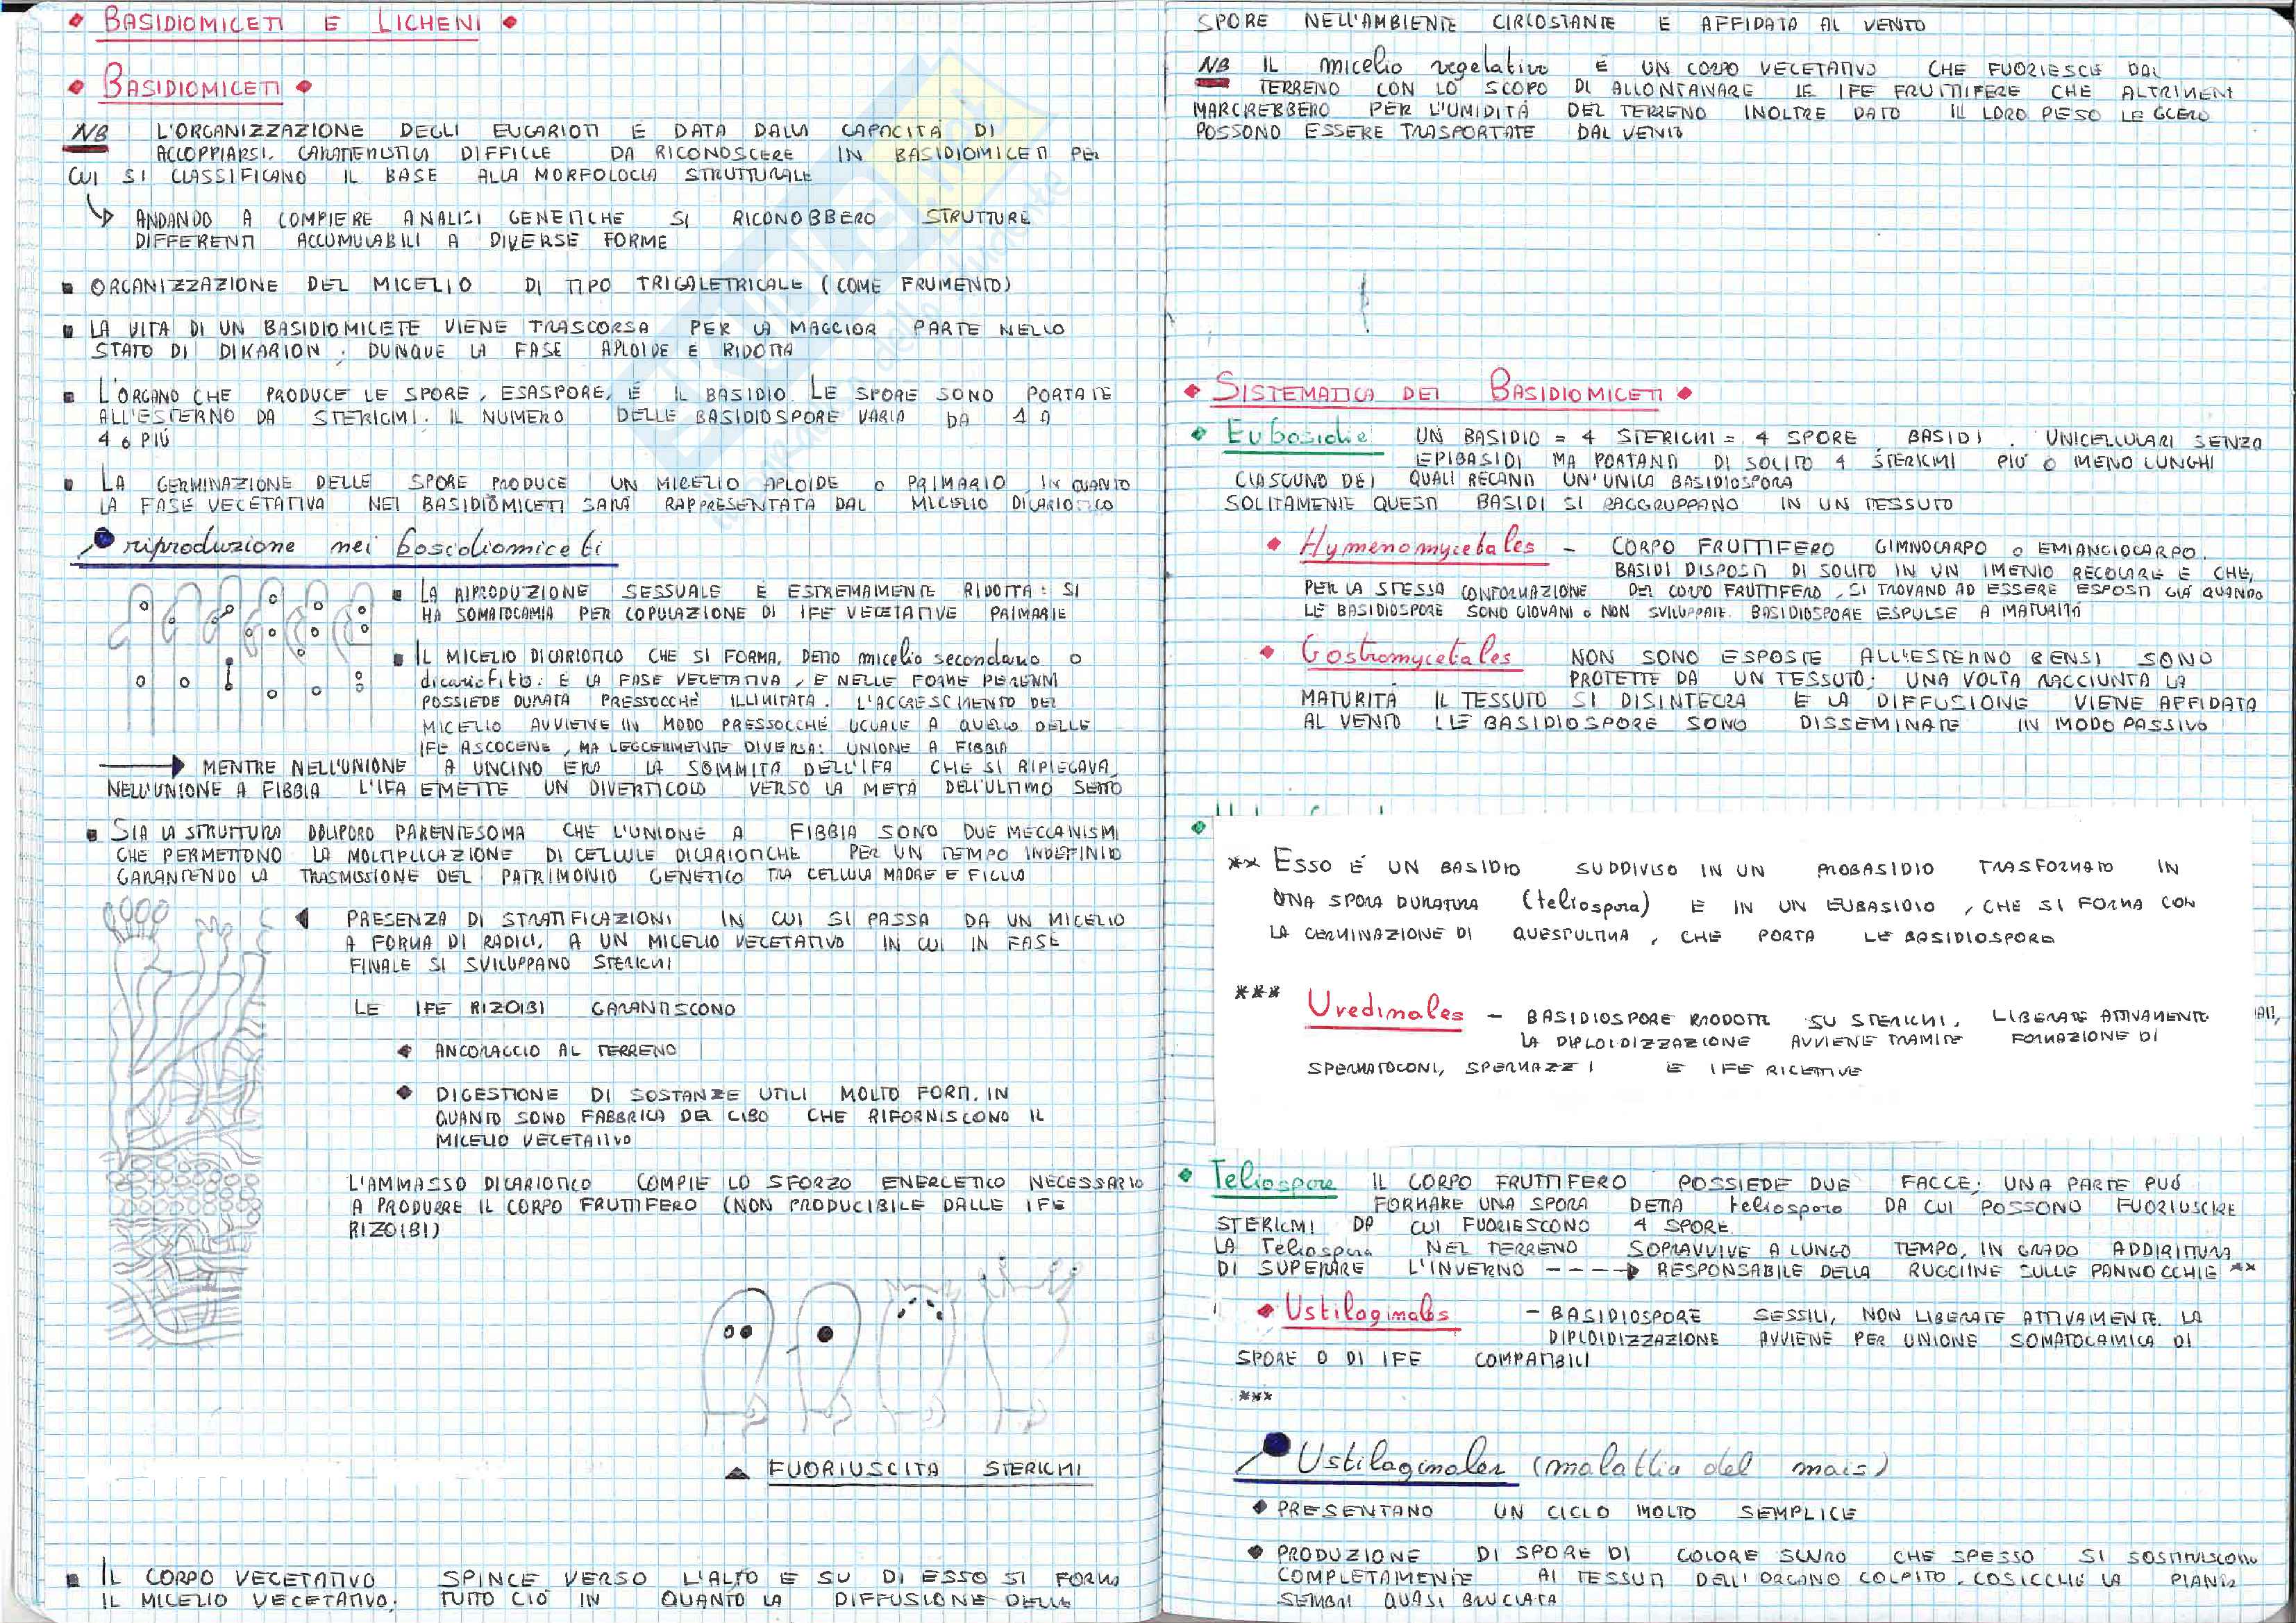 BASIDIOMICETI E LICHENI
BASIDIOMICETI
NB L'ORGANIZZAZIONE DEGLI EUCARIOTI È DATA DALLA CAPACITÀ DI
ACCOPPIARSI. CARATTERISTICA DIFFICILE DA RICONOSCERE IN BASIDIOMICETI PER
CUI SI CLASSIFICANO IL BASE ALLA MORFOLOGIA STRUTTURALE
ANDANDO A COMPIERE ANALISI GENETICHE SI RICONOBBERO STRUTTURE
DIFFERENTI ACCUMULABILI A DIVERSE FORME
ORGANIZZAZIONE DEL MICELIO DI TIPO TRIGALETRICALE (COME FRUMENTO)
LA VITA DI UN BASIDIOMICETE VIENE TRASCORSA PER LA MAGGIOR PARTE NELLO
STATO DI DIKARION, DUNQUE LA FASE APLOIDE È RIDOTTA
L'ORGANO CHE PRODUCE LE SPORE, ESASPORE, È IL BASIDIO. LE SPORE SONO PORTATE
ALL'ESTERNO DA STERIGMI. IL NUMERO DELLE BASIDIOSPORE VARIA DA 1 A
4 O PIÙ
LA GERMINAZIONE DELLE SPORE PRODUCE UN MICELIO APLOIDE O PRIMARIO, IN QUANTO
LA FASE VEGETATIVA NEI BASIDIOMICETI SARÀ RAPPRESENTATA DAL MICELIO DICARIOTICO
riproduzione nei basidiomiceti
LA RIPRODUZIONE SESSUALE È ESTREMAMENTE RIDOTTA: SI
HA SOMATOGAMIA PER COPULAZIONE DI IFE VEGETATIVE PRIMARIE
IL MICELIO DICARIOTICO CHE SI FORMA, DETTO micelio secondario o
dicariofitto: È LA FASE VEGETATIVA, E NELLE FORME PERENNI
POSSIEDE DURATA PRESSOCCHÈ ILLIMITATA. L'ACCRESCIMENTO DEL
MICELIO AVVIENE IN MODO PRESSOCCHÈ UGUALE A QUELLO DELLE
IFE ASCOGENE, MA LEGGERMENTE DIVERSA: UNIONE A FIBBIA
MENTRE NELL'UNIONE A UNCINO ERA LA SOMMITÀ DELL'IFA CHE SI RIPIEGAVA,
NELL'UNIONE A FIBBIA L'IFA EMETTE UN DIVERTICOLO VERSO LA METÀ DELL'ULTIMO SETTO
SIA LA STRUTTURA DOLIPORO PARENTESOMA CHE L'UNIONE A FIBBIA SONO DUE MECCANISMI
CHE PERMETTONO LA MOLTIPLICAZIONE DI CELLULE DICARIOTICHE PER UN TEMPO INDEFINITO
GARANTENDO LA TRASMISSIONE DEL PATRIMONIO GENETICO TRA CELLULA MADRE E FIGLIO
PRESENZA DI STRATIFICAZIONI IN CUI SI PASSA DA UN MICELIO
A FORMA DI RADICI, A UN MICELIO VEGETATIVO IN CUI IN FASE
FINALE SI SVILUPPANO STERIGMI
LE IFE RIZOIBI GARANTISCONO
ANCORAGGIO AL TERRENO
DIGESTIONE DI SOSTANZE UTILI MOLTO FORTI, IN
QUANTO SONO FABBRICA DEL CIBO CHE RIFORNISCONO IL
MICELIO VEGETATIVO
L'AMMASSO DICARIOTICO COMPIE LO SFORZO ENERGETICO NECESSARIO
A PRODURRE IL CORPO FRUTTIFERO (NON PRODUCIBILE DALLE IFE
RIZOIBI)
FUORIUSCITA STERIGMI
IL CORPO VEGETATIVO SPINGE VERSO L'ALTO E SU DI ESSO SI FORMA
IL MICELIO VEGETATIVO; TUTTO CIÒ IN QUANTO LA DIFFUSIONE DELLE
SPORE NELL'AMBIENTE CIRCOSTANTE È AFFIDATA AL VENTO
NB IL micelio vegetativo È UN CORPO VEGETATIVO CHE FUORIESCE DAL
TERRENO CON LO SCOPO DI ALLONTANARE LE IFE FRUTTIFERE CHE ALTRIMENTI
MARCIREBBERO PER L'UMIDITÀ DEL TERRENO INOLTRE DATO IL LORO PESO LEGGERO
POSSONO ESSERE TRASPORTATE DAL VENTO
SISTEMATICA DEI BASIDIOMICETI
Eubasidie UN BASIDIO = 4 STERIGMI = 4 SPORE. BASIDI UNICELLULARI SENZA
EPIBASIDI MA PORTANTI DI SOLITO 4 STERIGMI PIÙ O MENO LUNGHI
CIASCUNO DEI QUALI RECANTI UN'UNICA BASIDIOSPORA
SOLITAMENTE QUESTI BASIDI SI RAGGRUPPANO IN UN TESSUTO
Hymenomycetales - CORPO FRUTTIFERO GIMNOCARPO O EMIANGIOCARPO.
BASIDI DISPOSTI DI SOLITO IN UN IMENIO REGOLARE E CHE,
PER LA STESSA CONFORMAZIONE DEL CORPO FRUTTIFERO, SI TROVANO AD ESSERE ESPOSTI GIÀ QUANDO
LE BASIDIOSPORE SONO GIOVANI O NON SVILUPPATE. BASIDIOSPORE ESPULSE A MATURITÀ
Gastromycetales NON SONO ESPOSTE ALL'ESTERNO BENSÌ SONO
PROTETTE DA UN TESSUTO; UNA VOLTA RAGGIUNTA LA
MATURITÀ IL TESSUTO SI DISINTEGRA E LA DIFFUSIONE VIENE AFFIDATA
AL VENTO LE BASIDIOSPORE SONO DISSEMINATE IN MODO PASSIVO
** ESSO È UN BASIDIO SUDDIVISO IN UN PROBASIDIO TRASFORMATO IN
UNA SPORA DURATURA (teliospora) E IN UN EUBASIDIO, CHE SI FORMA CON
LA GERMINAZIONE DI QUEST'ULTIMA, CHE PORTA LE BASIDIOSPORE
*** Uredinales - BASIDIOSPORE PRODOTTE SU STERIGMI, LIBERATE ATTIVAMENTE
LA DIPLOIDIZZAZIONE AVVIENE TRAMITE FORMAZIONE DI
SPERMATOGONI, SPERMAZZI E IFE RICETTIVE
Teliospore IL CORPO FRUTTIFERO POSSIEDE DUE FACCE; UNA PARTE PUÒ
FORMARE UNA SPORA DETTA teliospora DA CUI POSSONO FUORIUSCIRE
STERIGMI DA CUI FUORIESCONO 4 SPORE.
LA Teliospora NEL TERRENO SOPRAVVIVE A LUNGO TEMPO, IN GRADO ADDIRITTURA
DI SUPERARE L'INVERNO ----> RESPONSABILE DELLA RUGGINE SULLE PANNOCCHIE **
Ustilaginales - BASIDIOSPORE SESSILI, NON LIBERATE ATTIVAMENTE. LA
DIPLOIDIZZAZIONE AVVIENE PER UNIONE SOMATOGAMICA DI
SPORE O DI IFE COMPATIBILI
***
Ustilaginales (malattia del mais)
PRESENTANO UN CICLO MOLTO SEMPLICE
PRODUZIONE DI SPORE DI COLORE SCURO CHE SPESSO SI SOSTITUISCONO
COMPLETAMENTE AI TESSUTI DELL'ORGANO COLPITO. COSICCHÈ LA PIANTA
SEMBRI QUASI BRUCIATA